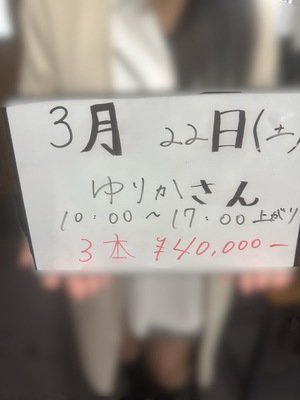 3月 22日(土)
ゆりかさん
10:00～17:00 上がり
3本 ¥40,000-